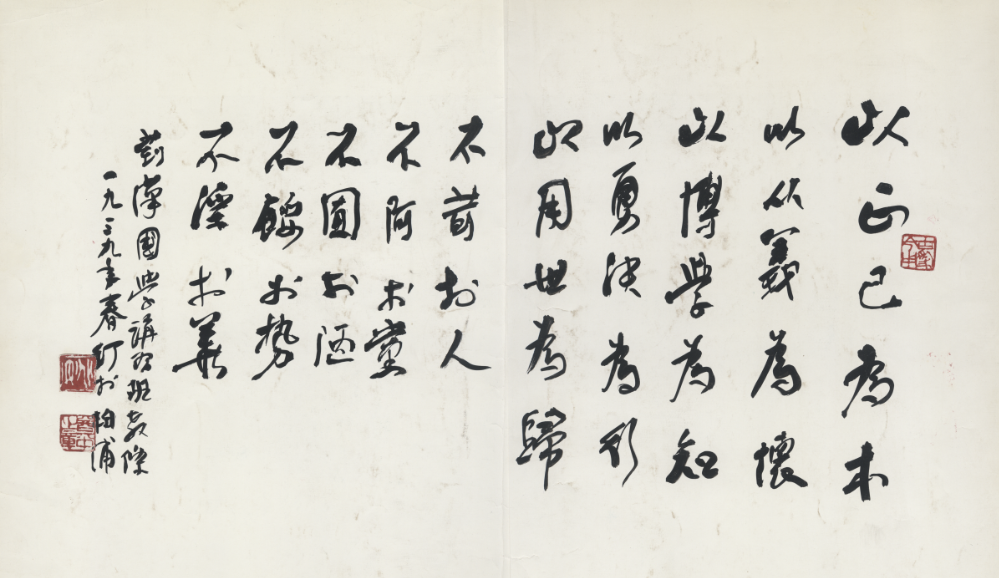 以正己為本
以從義為懷
以博學為知
以勇決為行
以用世為歸
不苟於人
不阿於黨
不囿於陋
不餒於勢
不淫於華
蕲漢國學講習班教條
一九三九年春訂於柏浦